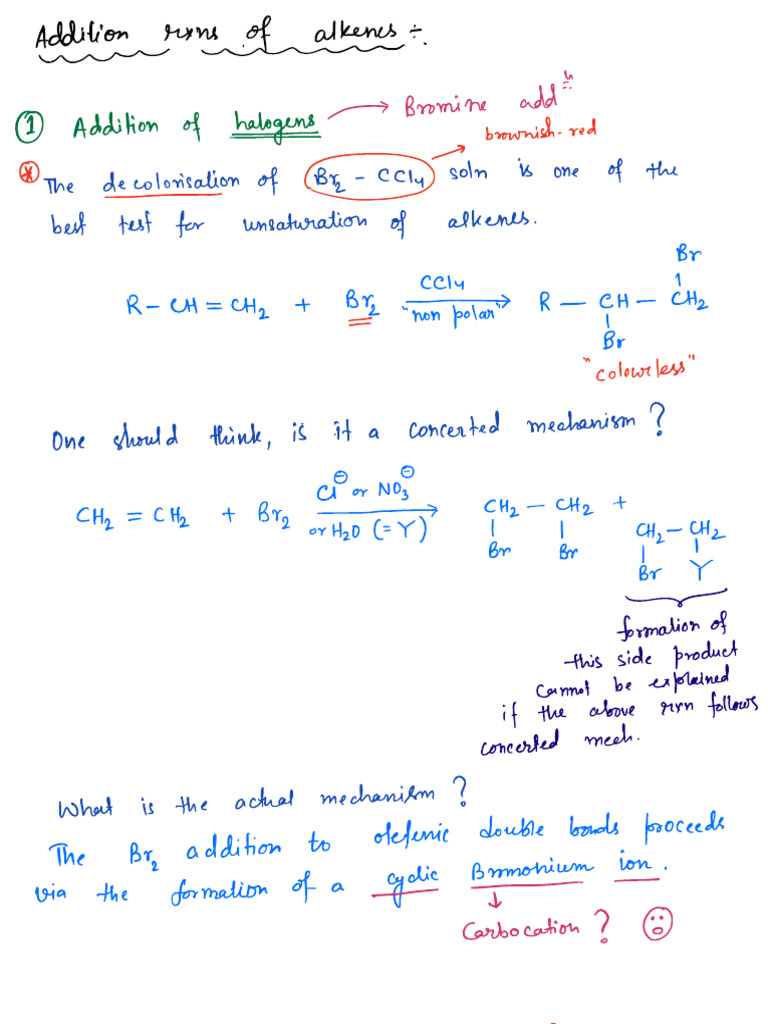 Addition rxns of alkenes ÷
① Addition of halogens → Bromine addⁿ
brownish-red
* The decolorisation of Br₂ - CCl₄ soln is one of the
best test for unsaturation of alkenes.
Br
R — CH = CH₂ + Br₂ CCl₄ "non polar" → R — CH — CH₂
Br
"colourless"
One should think, is it a concerted mechanism?
CH₂ = CH₂ + Br₂ Cl⊖ or NO₃⊖ or H₂O (= Y) → CH₂ — CH₂ +
Br Br
CH₂ — CH₂
Br Y
formation of
this side product
cannot be explained
if the above rxn follows
concerted mech.
What is the actual mechanism?
The Br₂ addition to olefenic double bonds proceeds
via the formation of a cyclic Bromonium ion.
Carbocation? ☹